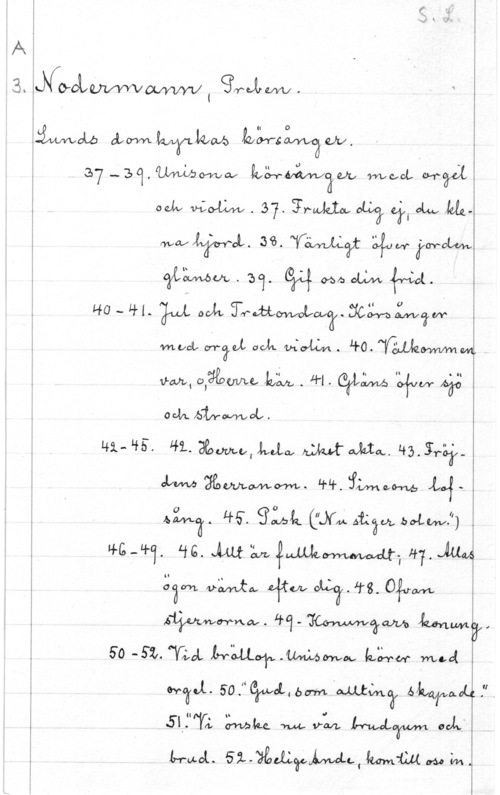 S. L.
A
3. Nodermann, Preben.
Lunds domkyrkas körsånger.
37-39. Unisona körsånger med orgel
och violin. 37. Frukta dig ej, du kle-
na hjord. 38. Vänligt öfver jorden
glänser. 39. Gif oss din frid.
40-41. Jul och Trettondag. Körsånger
med orgel och violin. 40. Välkommen
var, o, Herre kär. 41. Gläns öfver sjö
och strand.
42-45. 42. Herre, hela riket akta. 43. Fröj-
dens Herranom. 44. Simeons lof-
sång. 45. Påsk ("Nu stiger solen.")
46-49. 46. Allt är fullkommnadt; 47. Allas
ögon vänta efter dig. 48. Ofvan
stjernorna. 49. Konungars konung.
50-52. Vid bröllop. Unisona körer med
orgel. 50. "Gud, som allting skapade."
51. "Vi önske nu vår brudgum och
brud. 52. Helige Ande, kom till oss in.